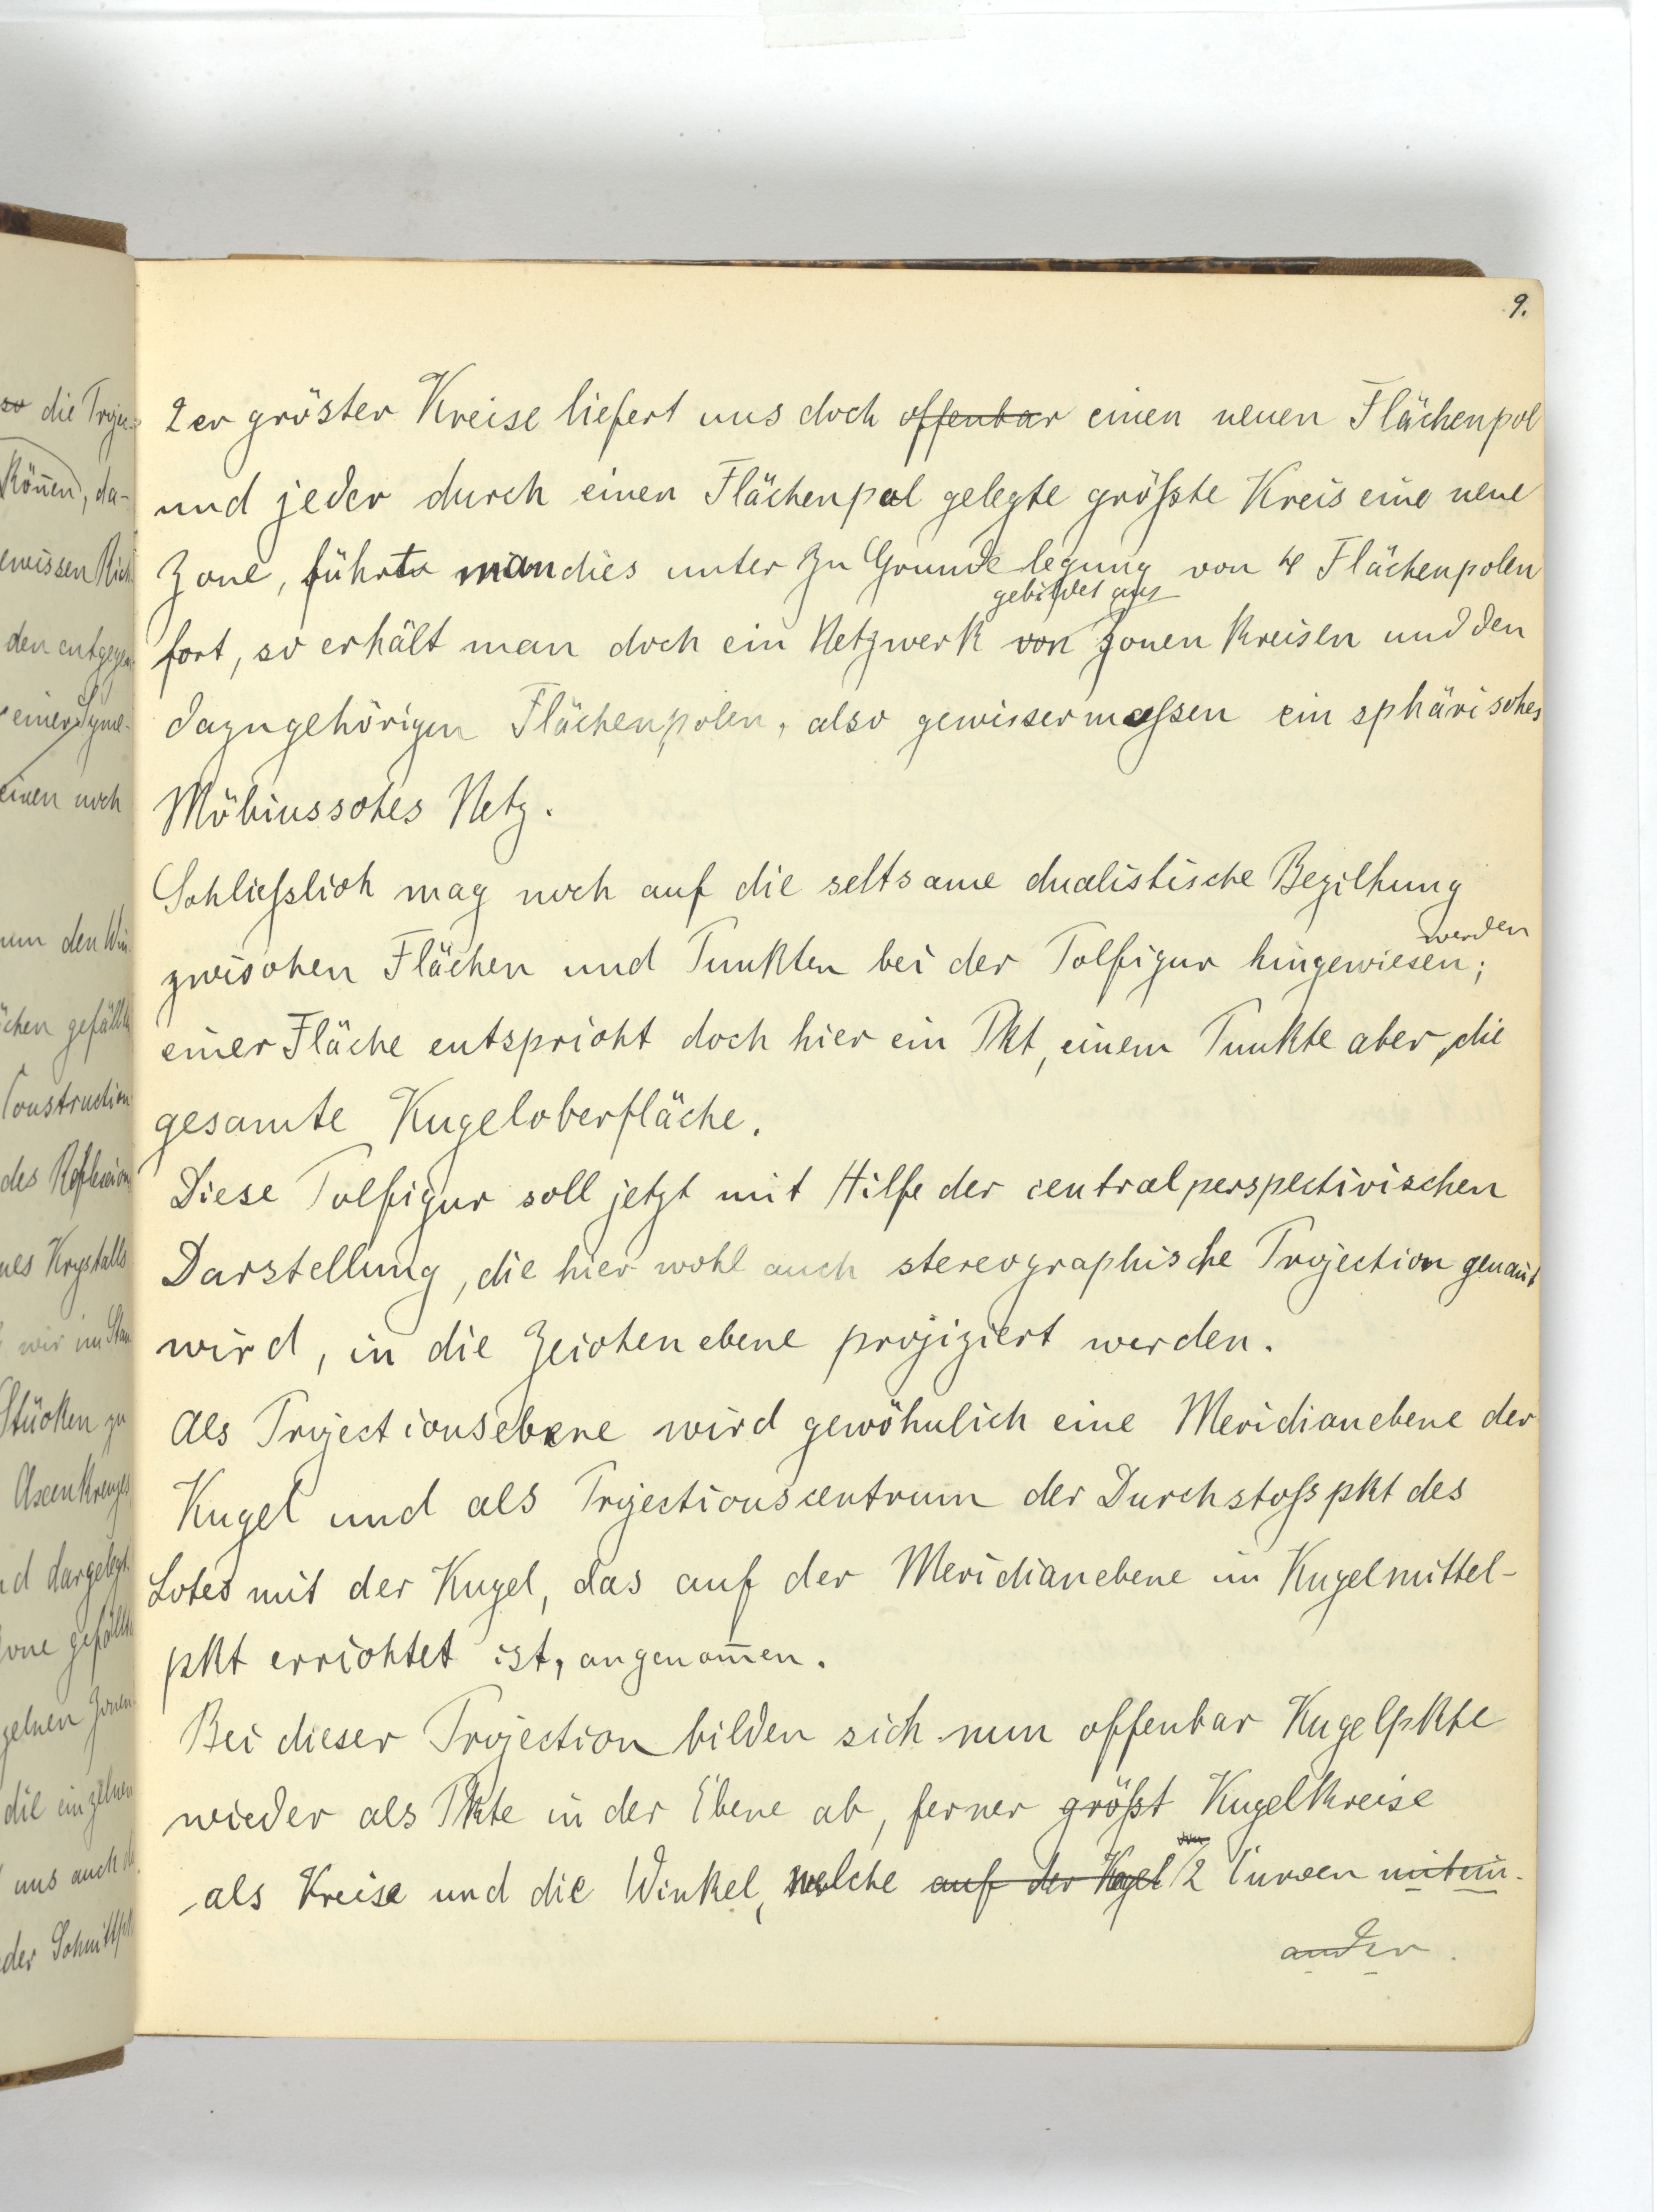 9.
2er gröster Kreise liefert uns doch offenbar einen neuen Flächenpol
und jeder durch einen Flächenpol gelegte größte Kreis eine neue
Zone, führt man dies unter zu Grunde legung von 4 Flächenpolen
gebildet aus
fort, so erhält man doch ein Netzwerk von Zonen Kreisen und den
dazugehörigen Flächenpolen, also gewissermassen ein sphärisches
Möbiussches Netz.
Schliesslich mag noch auf die seltsame dualistische Beziehung
werden
zwischen Flächen und Punkten bei der Polfigur hingewiesen;
einer Fläche entspricht doch hier ein Pkt, einem Punkte aber, die
gesamte Kugeloberfläche.
Diese Polfigur soll jetzt mit Hilfe der centralperspectivischen
Darstellung, die hier wohl auch stereographische Projection genan̄t
wird, in die Zeichenebene projiziert werden.
Als Projectionsebene wird gewöhnlich eine Meridianebene der
Kugel und als Projectionscentrum der Durchstosspkt des
Lotes mit der Kugel, das auf der Meridianebene im Kugelmittel-
pkt errichtet ist, angenom̄en.
Bei dieser Projection bilden sich nun offenbar Kugelpkte
wieder als Pkte in der Ebene ab, ferner größt Kugelkreise
von
als Kreise und die Winkel, welche auf der Kugel 2 Curven mitein-
ander.
so die Projec-
kön̄en, da-
den entgegen
einen noch
um den Win
chen gefällt
Construction
des Reflexion
nes Krystalls
wir im Stan
Stücken zu
Axenkreuzes
nd dargelegt.
one gefällt
zelnen Zonen
die einzelnen
uns auch
der Schnittpk